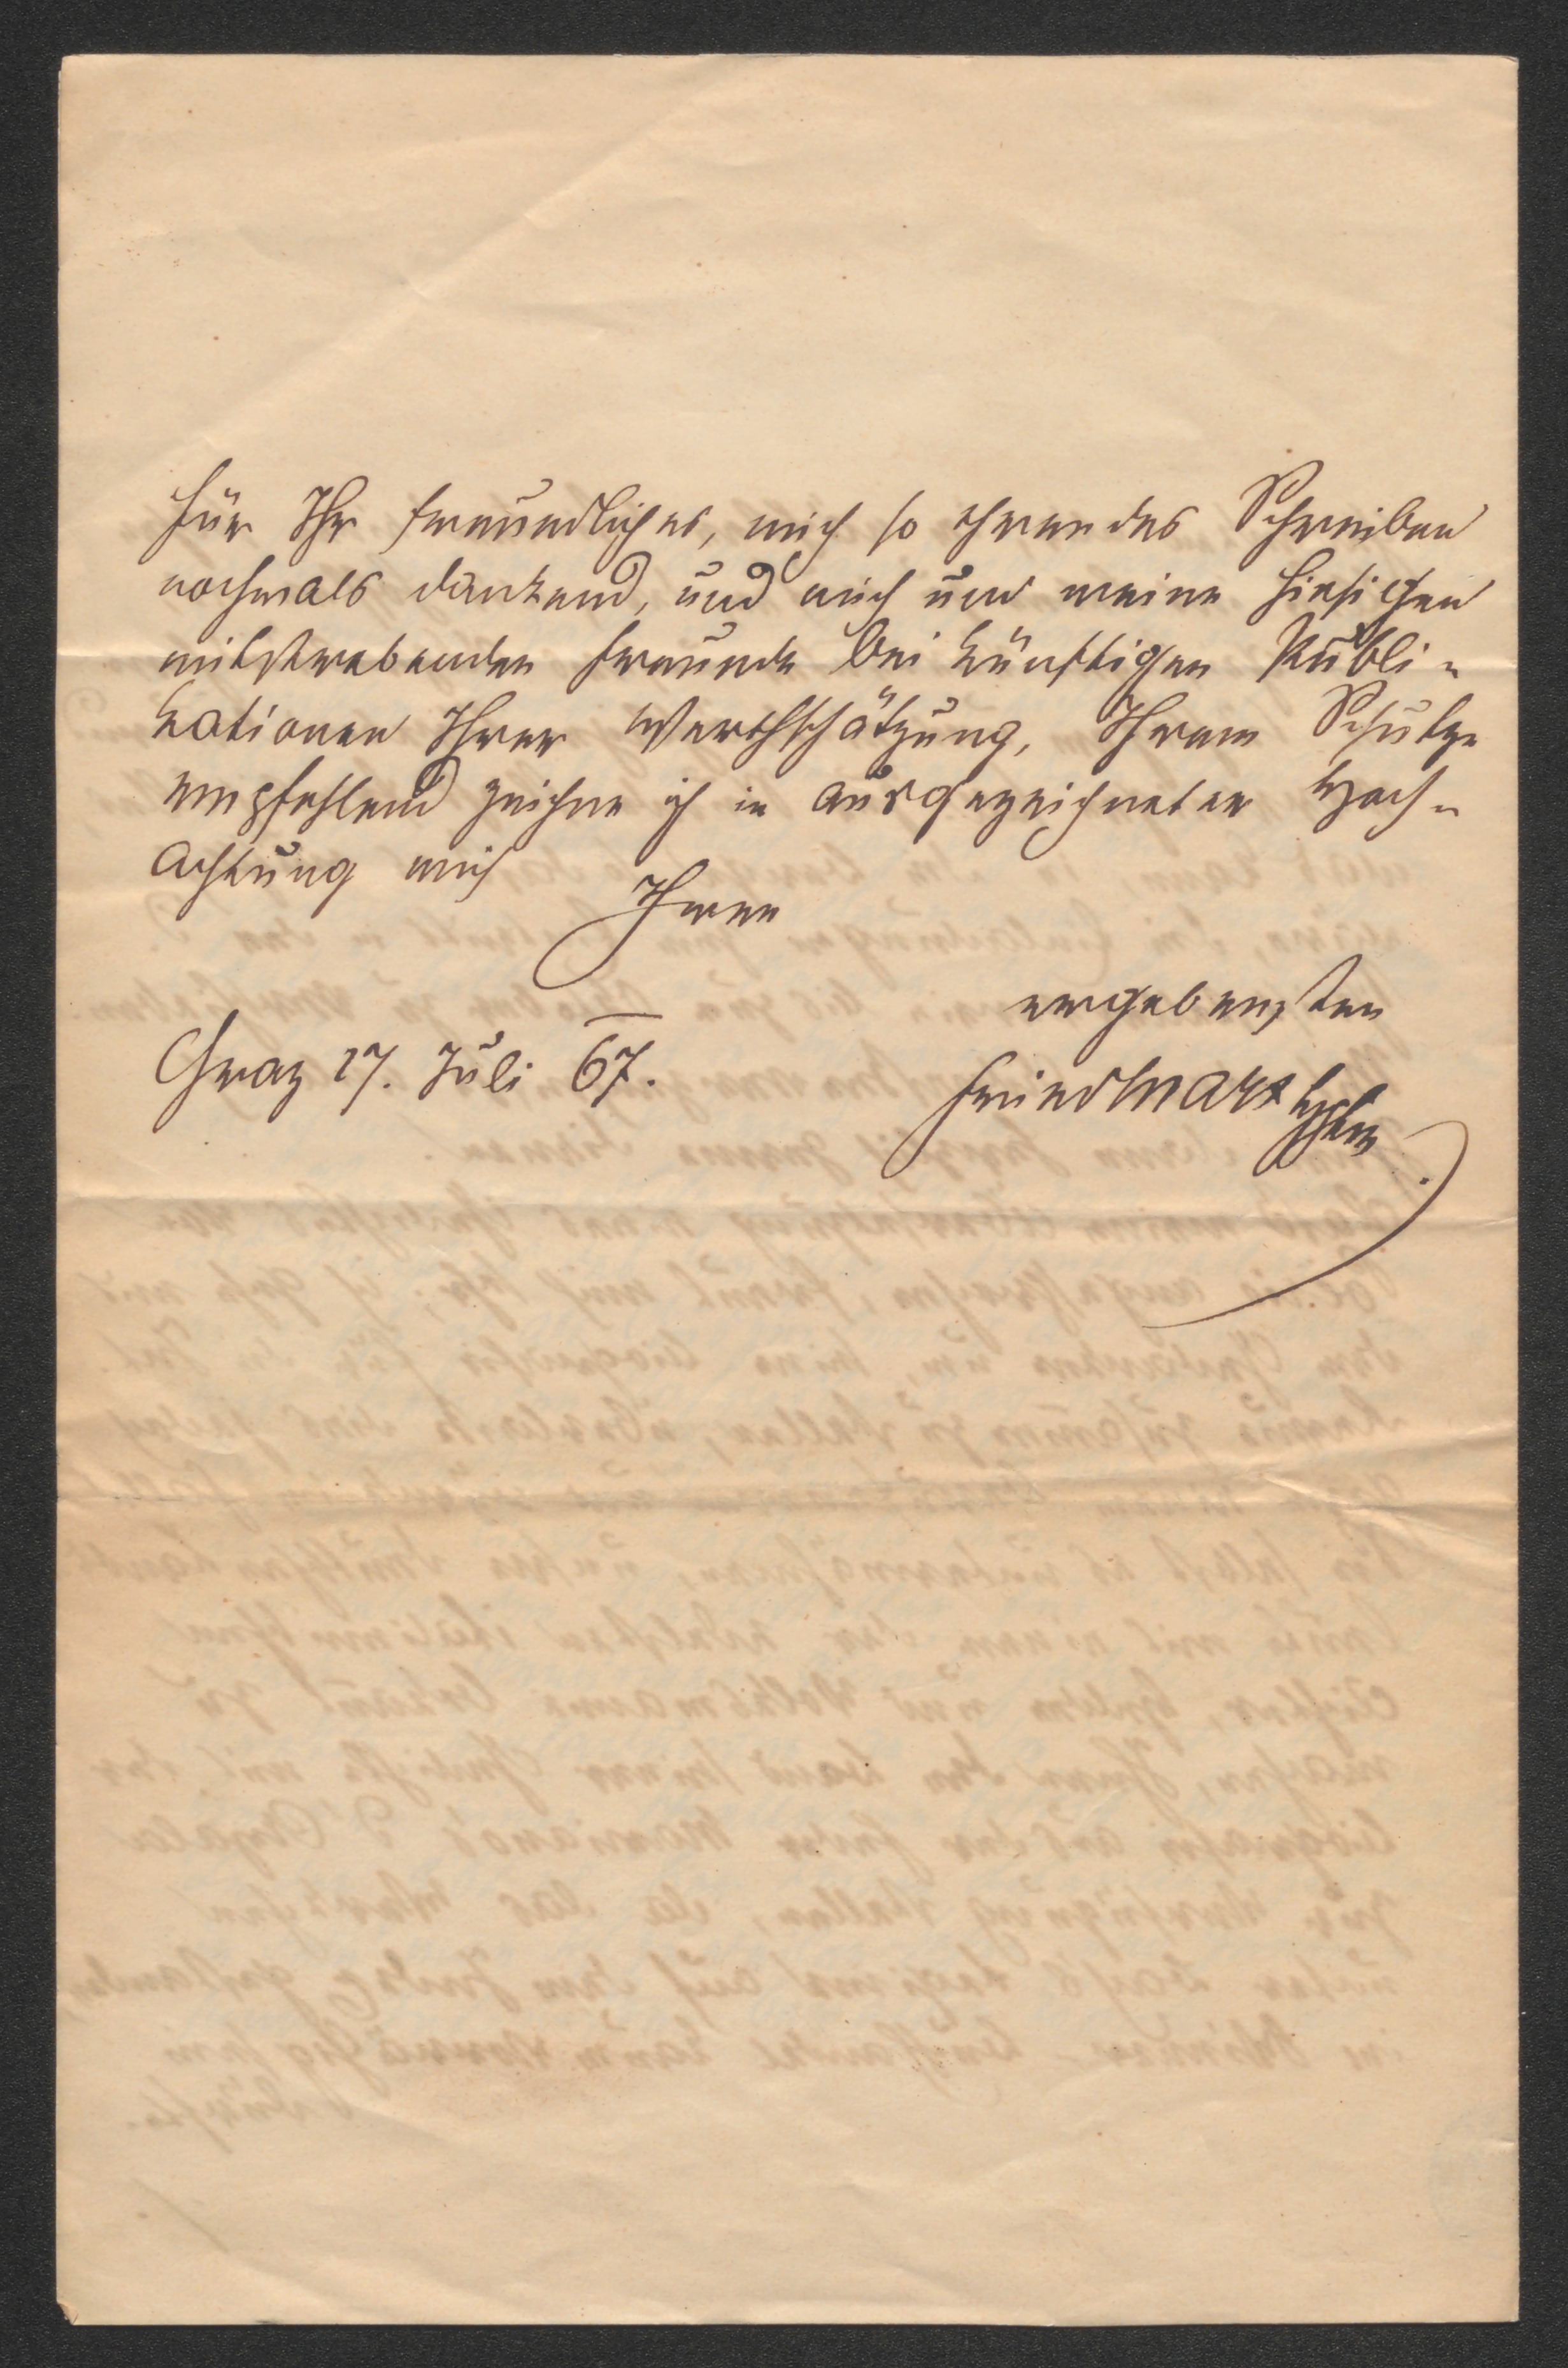 Für Ihr freundliches, mich so ehrendes Schreiben
nochmals dankend, und mich und meine hiesigen
mitstrebenden Freunde bei künftigen Publi-
kationen Ihrer Werthschätzung, Ihrem Schutze
empfehlend zeichne ich in ausgezeichneter Hoch-
achtung mich
Ihren
ergebensten
Graz 17. Juli 67.
Friedmarx